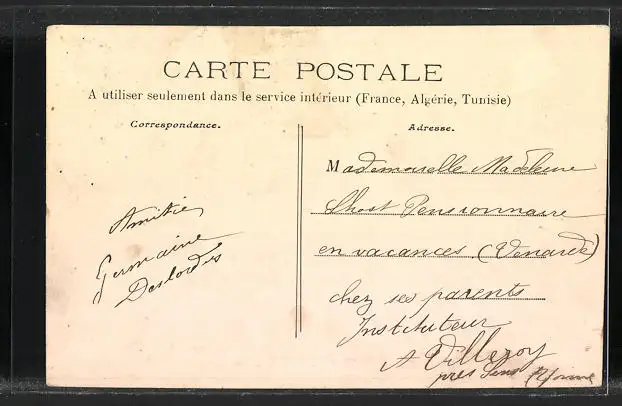 CARTE POSTALE
A utiliser seulement dans le service intérieur (France, Algérie, Tunisie)
Correspondance.
Amitiés
Germaine
Adresse.
Mademoiselle Madeleine
Pensionnaire
en vacances
chez ses parents
Instituteur
A Villeroy
près Sens (Yonne